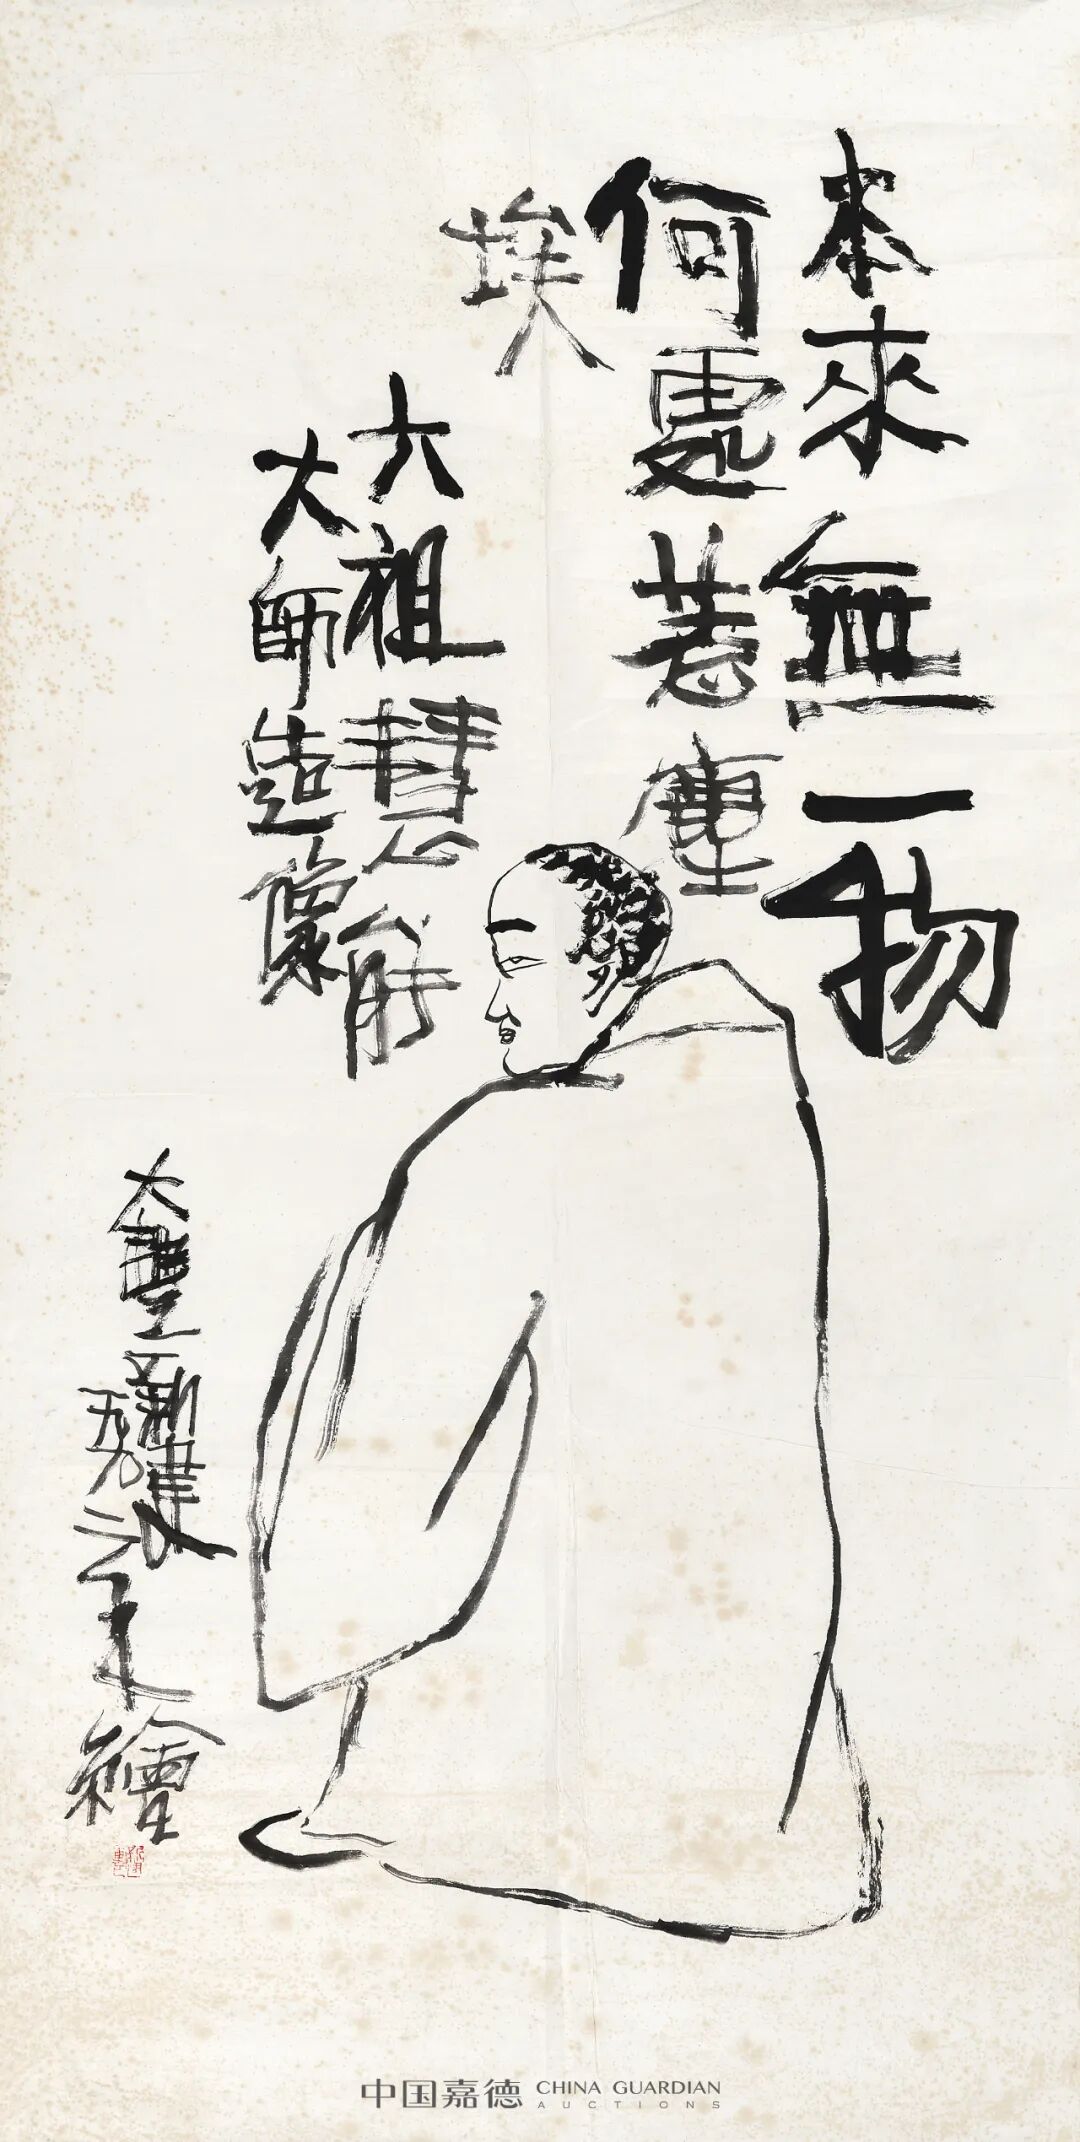 本來無一物
何處惹塵
埃
六祖慧能
大師造像
大豐新建
年繪
中国嘉德 CHINA GUARDIAN
AUCTIONS